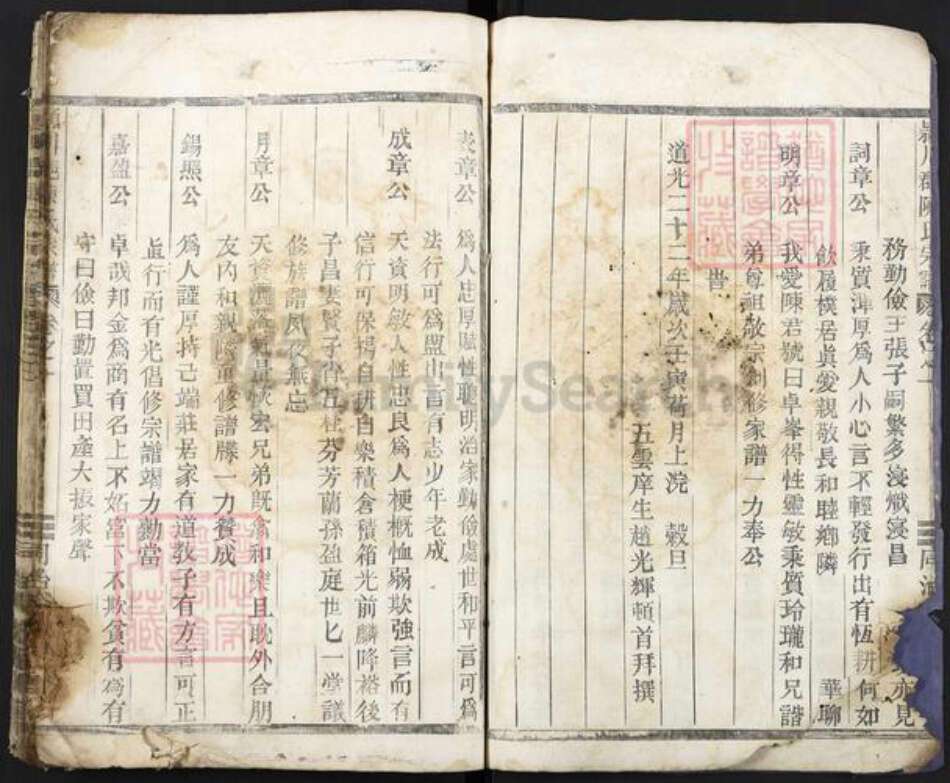 務勤儉主張子嗣繁多浸熾寖昌 亦見
詞章公 秉質渾厚爲人小心言不輕發行出有恆耕何如
飲履樸居眞愛親敬長和睦鄉隣 華聊
明章公 我愛陳君號曰卓峯得性靈敏秉質玲瓏和兄諧
弟尊祖敬宗創修家譜一力奉公
旹
道光二十二年歲次壬寅荷月上浣 穀旦
五雲庠生趙光輝頓首拜撰
表章公 爲人忠厚賦性聰明治家勤儉處世和平言可爲
法行可爲盟出言有志少年老成
成章公 天資明敏人性忠良爲人梗概恤弱欺強言而有
信行可保楊自耕自樂積倉積箱光前麟降裕後
子昌妻賢子肖五桂芬芳蘭孫盈庭世匕一堂議
修族譜夙夜無忘
月章公 天資灑落氣量恢宏兄弟既翕和樂且耽外合朋
友内和親隣重修譜牒一力贊成
錫熙公 爲人謹厚持己端莊居家有道教子有方言可正
行而有光倡修宗譜竭力勷當
嘉盈公 卓哉邦金爲商有名上不妬富下不欺貧有爲有
守曰儉曰勤置買田產大振家聲
FamilySearch